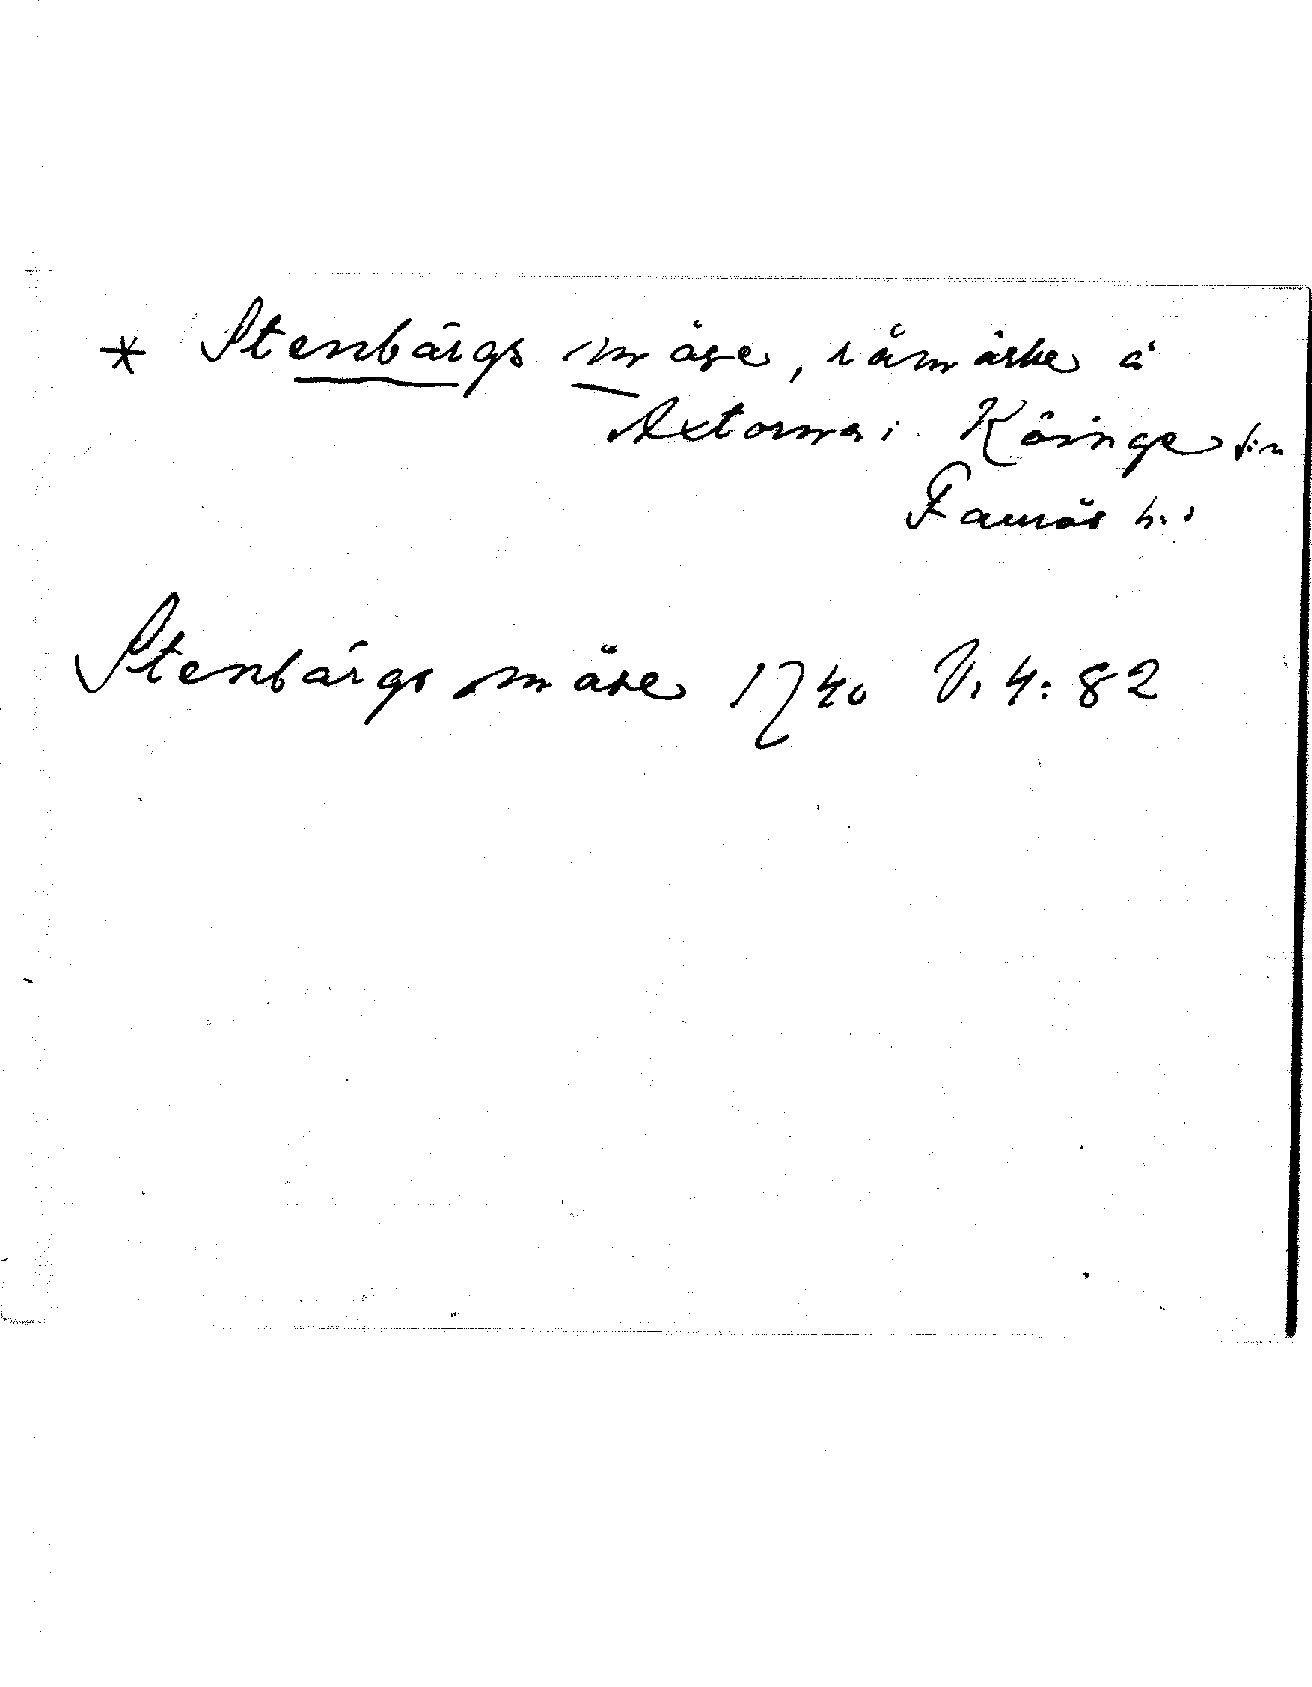 * Stenbärgs måse, råmärke å
Axtorna i Köinge sn
Faurås hd
Stenbärgs måse 1740 V. 4: 82